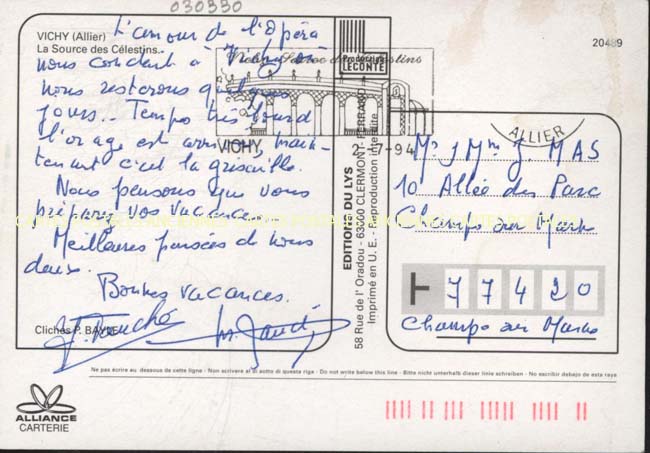 030330
VICHY (Allier)
La Source des Célestins.
L'amour de l'Opéra
nous conduit à Vichy où
nous resterons quelques
jours.. Temps très lourd
l'orage est arrivé, main-
tenant c'est la grisaille.
Nous pensons que vous
préparez vos vacances.
Meilleures pensées de nous
deux.
Bonnes vacances.
Clichés P. BAYLE
Production
LECONTE
VICHY,
2-7-94
EDITIONS DU LYS
58 Rue de l' Oradou - 63000 CLERMONT-FERRAND
Imprimé en U. E. - Reproduction interdite
20489
ALLIER
Mr & Mme J. MAS
10. Allée du Parc
Champs sur Marne
77420
Champs sur Marne
Ne pas écrire au dessous de cette ligne - Non scrivere al di sotto di questa riga - Do not write below this line - Bitte nicht unterhalb dieser linie schreiben - No escribir debajo de esta raya
ALLIANCE
CARTERIE